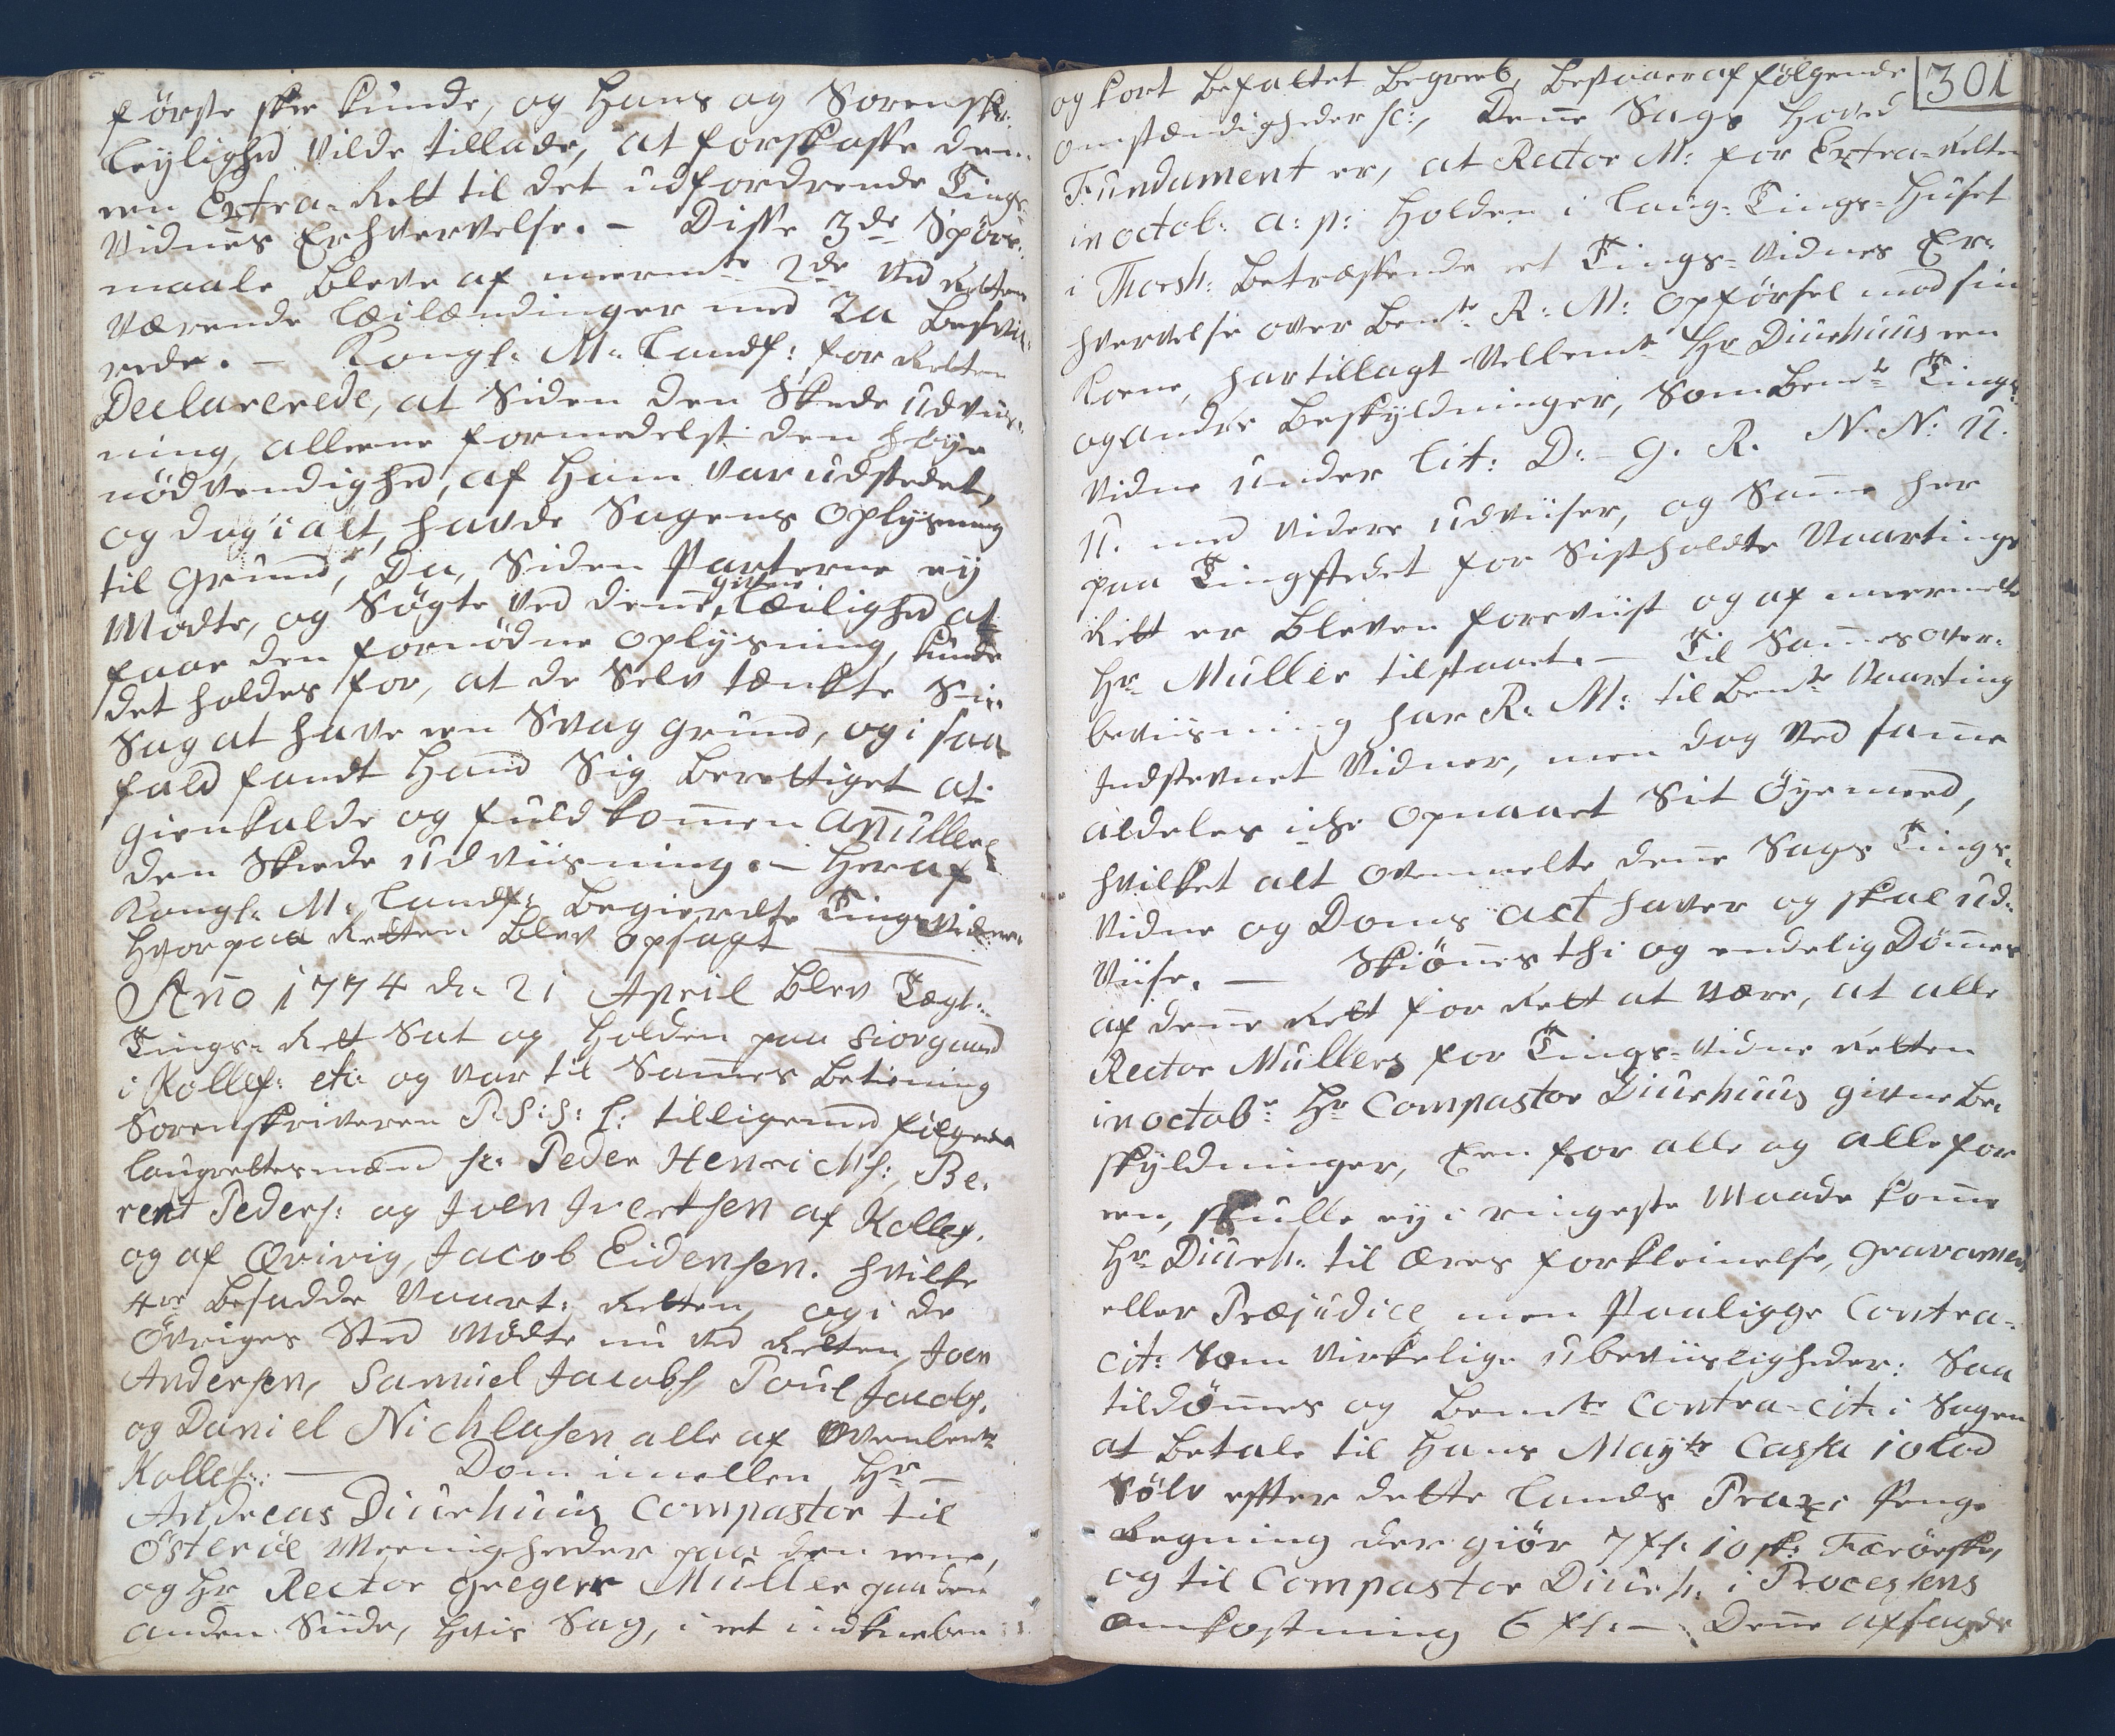 første skee kunde, og Hans og Sorenskr:
leylighed vilde tillade, at forskaffe dem
een Extra-Rett til det udfordrende Tings-
Vidnes Erhvervelse. – Disse 3de Spörs-
maale bleve af meermte 2de ved Retten
værende Leilændinger med Ja besva-
rede. – Kongl: M: Landf: for Retten
Declarerede, at Siden den Skeede udviis-
ning, alleene formedelst den høye
nödvendighed, af Ham var udstedet,
og dog i alt, havde Sagens oplysning
til Grund, Da, Siden Parterne ey
Mødte, og Søgte ved denne givne Leilighed at
faae den fornødne oplysning, kunde
det holdes for, at de Selv tænkte Sin
Sag at have een Svag grund, og i saa
fald fandt Hand Sig berettiget at
gienkalde og fuldkommen Anullere
den Skeede udviisning. – Heraf
Kongl: M: Landf: begierede Tingsvidne.
Hvorpaa Retten blev opsagt
Año 1774 d: 21 April blev Lagt-
Tings-Rett Sat og Holden paa Siorgaard
i Kollef: etc og var til Sam̄es betiening
Sorenskriveren R S: S: L: tilligemed følgende
laugrettesmænd sc: Peder Henrichs:, Be-
rent Peders: og Joen Joensen af Kollef.
og af Qvivig, Jacob Eidensen. hvilke
4re besadde Vaart: Retten, og i de
Övriges Sted Mødte nu ved Retten Joen
Andersen, Samuel Jacobs, Poul Jacobs,
og Daniel Nichlasen alle af Ovenbente
Kollef: – Dom imellem Hr
Andreas Diurhuus Compastor til
Österöe Meenigheder paa den eene,
og Hr Rector Gregers Müller paa den
anden Siide, hvis Sag, i et indkneben
301
og kort befattet begreb, bestaaer af følgende
omstændigheder sc:, Denne Sags Hoved
Fundament er, at Rector M: for Extra-Retten
in octob: a: p: Holden i Laug-Tings-Huset
i Thorsh: betræffende et Tings-Vidnes Er-
hvervelse over Bente R: M: Opförsel mod sin
Kone, har tillagt Vellemte Hr Diurhuus een
og anden beskyldninger, Som Bemte Tings
Vidne under Lit: D: – G. R. N. N: U.
U. med videre udviiser, og Samme her
paa Tingstedet for Sistholdte Vaartings
Rett er bleven foreviist og af meermelte
Hr Müller tilstaaet. – Til Sammes over-
beviisning har R. M: til Bemte Vaarting
Indstevnet Vidner, men dog ved samme
aldeles icke opnaaet Sit Öyemeed,
hvilket alt ovenmelte denne Sags Tings-
Vidne og Doms act haver og skal ud-
viise. – Skiönnes thi og endelig Dömmes
af denne Rett for Rett at være, at alle
Rector Müllers for Tings-Vidne Retten
in octobr Hr Compastor Diurhuus givne be-
skyldninger, Een for alle og alle for
een, skulle ey i ringeste Maade komme
Hr Diurh: til Æres forkleinelse, gravamen
eller Præjudice, men Paaligge Contra-
cit: som virkelige ubeviisligheder: Saa
tildömmes og Bemte Contra-cit: i Sagen
at betale til Hans Mayts Cassa 10 Lod
Sölv effter dette Lands Praxi penge
Regning der giör 7 fl: 10 sk: Færöeske,
og til Compastor Diurh: i Processens
omkostning 6 fl: – Denne afsagde